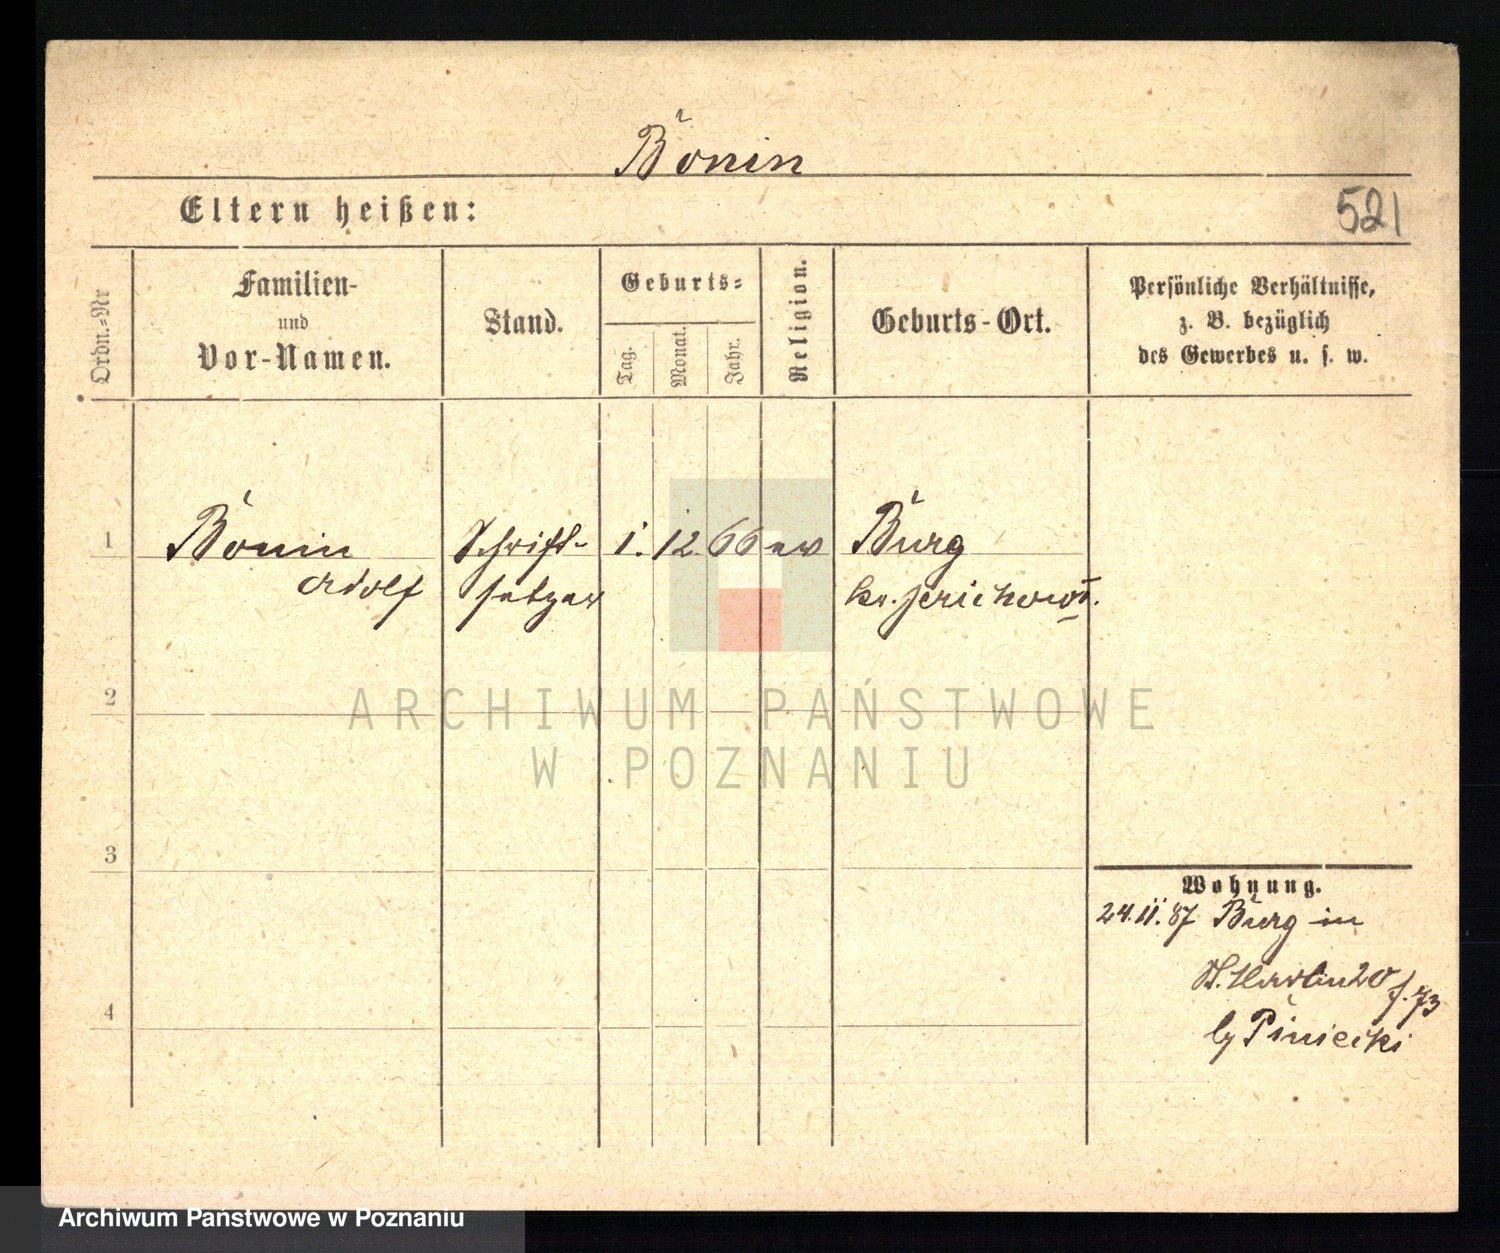 Bonin
Eltern heißen:
521
Ordn.-Nr
Familien-
und
Vor-Namen.
Stand.
Geburts-
Tag.
Monat.
Jahr.
Religion.
Geburts-Ort.
Persönliche Verhältnisse,
z. B. bezüglich
des Gewerbes u. s. w.
1 Bonin Schrift- 1. 12. 66 ev Burg
Adolf setzer Kr. Jerichow I.
2
ARCHIWUM PAŃSTWOWE
W POZNANIU
3
Wohnung.
24.11.87 Burg in
St. Martin 20
f. 73
4
by Piniecki
Archiwum Państwowe w Poznaniu